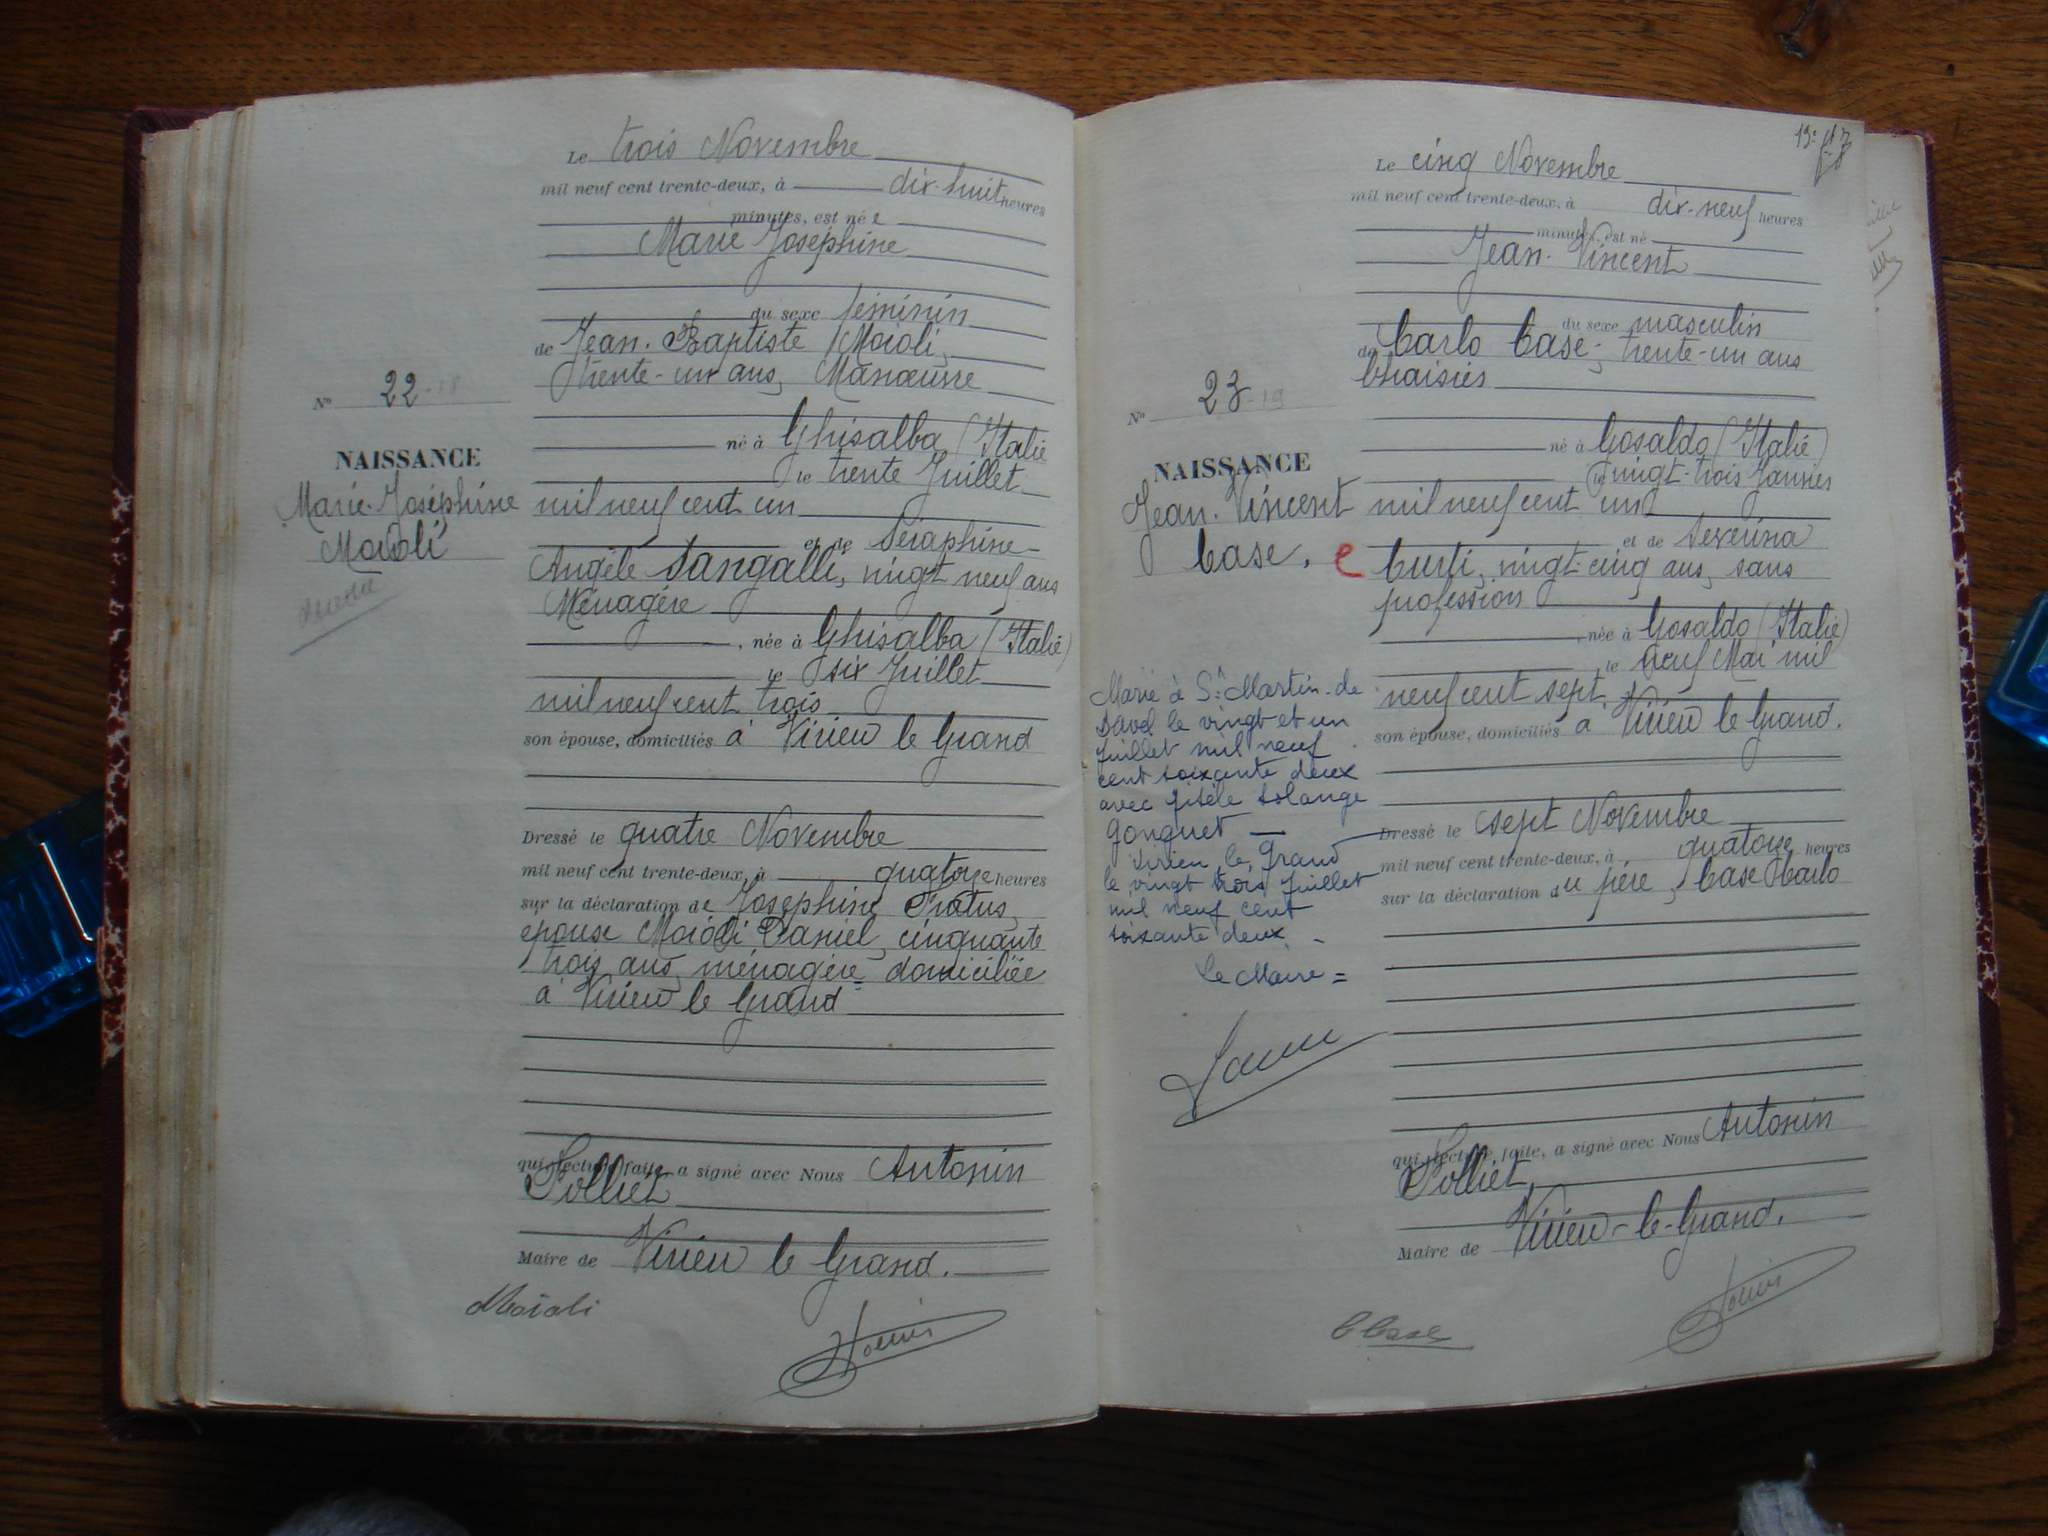 Le trois Novembre
mil neuf cent trente-deux, à dix-huit heures
minutes, est né e
Marie Joséphine
du sexe féminin
de Jean-Baptiste Moioli,
trente-un ans, Manœuvre
né à Ghisalba (Italie
le trente Juillet
mil neuf cent un
et de Séraphine-
Angèle Sangalli, vingt neuf ans
Ménagère
, née à Ghisalba (Italie)
le six Juillet
mil neuf cent trois
son épouse, domiciliés à Virieu le Grand
Dressé le quatre Novembre
mil neuf cent trente-deux, à quatorze heures
sur la déclaration de Joséphine Pratus,
épouse Moioli Daniel, cinquante
trois ans, ménagère domiciliée
à Virieu le Grand
qui, lecture faite, a signé avec Nous Antonin
Solliet
Maire de Virieu le Grand.
Moioli
No 22-18
NAISSANCE
Marie-Joséphine
Moioli
19e
Le cinq Novembre
mil neuf cent trente-deux, à dix-neuf heures
minutes, est né
Jean-Vincent
du sexe masculin
de Carlo Case, trente-un ans
Chaisier
né à Gosaldo (Italie)
le vingt-trois Janvier
mil neuf cent un
et de Severina
Curti, vingt-cinq ans, sans
profession
, née à Gosaldo (Italie)
, le neuf Mai mil
neuf cent sept
son épouse, domiciliés à Virieu le Grand.
Dressé le sept Novembre
mil neuf cent trente-deux, à quatorze heures
sur la déclaration du père, Case Carlo
qui, lecture faite, a signé avec Nous Antonin
Solliet,
Maire de Virieu-le-Grand.
C Case
No 23-19
NAISSANCE
Jean-Vincent
Case. e
Marié à St Martin-de
Bavel le vingt et un
Juillet mil neuf
cent soixante deux
avec Gisèle Solange
Gonguet —
Virieu le Grand
le vingt trois Juillet
mil neuf cent
soixante deux. -
Le Maire =